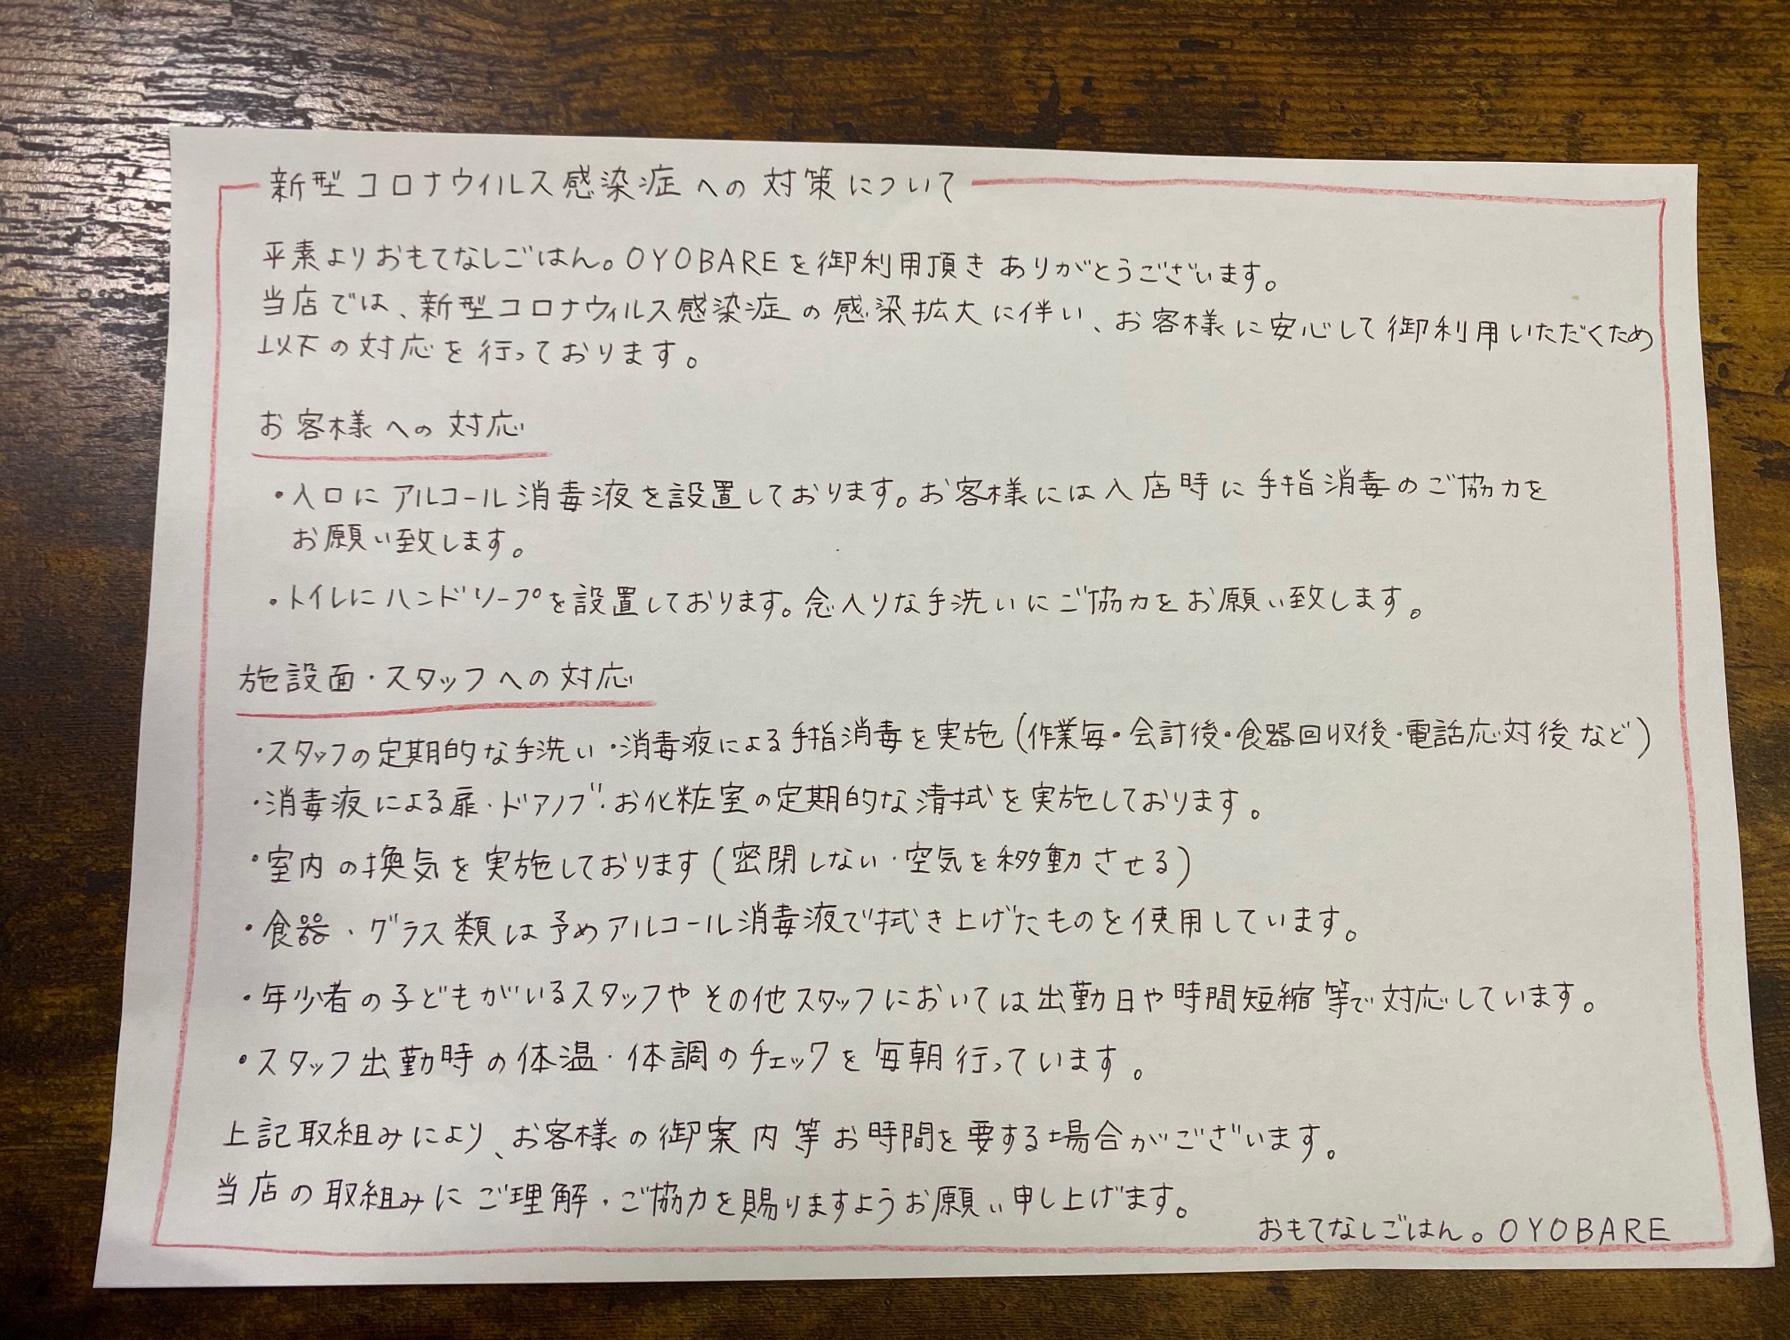 新型コロナウイルス感染症への対策について
平素よりおもてなしごはん。OYOBAREを御利用頂きありがとうございます。
当店では、新型コロナウィルス感染症の感染拡大に伴い、お客様に安心して御利用いただくため
以下の対応を行っております。
お客様への対応
・入口にアルコール消毒液を設置しております。お客様には入店時に手指消毒のご協力を
お願い致します。
・トイレにハンドソープを設置しております。念入りな手洗いにご協力をお願い致します。
施設面・スタッフへの対応
・スタッフの定期的な手洗い・消毒液による手指消毒を実施(作業毎・会計後・食器回収後・電話応対後など)
・消毒液による扉・ドアノブ・お化粧室の定期的な清拭を実施しております。
・室内の換気を実施しております(密閉しない・空気を移動させる)
・食器、グラス類は予めアルコール消毒液で拭き上げたものを使用しています。
・年少者の子どもがいるスタッフやその他スタッフにおいては出勤日や時間短縮等で対応しています。
・スタッフ出勤時の体温・体調のチェックを毎朝行っています。
上記取組みにより、お客様の御案内等お時間を要する場合がございます。
当店の取組みにご理解・ご協力を賜りますようお願い申し上げます。
おもてなしごはん。OYOBARE